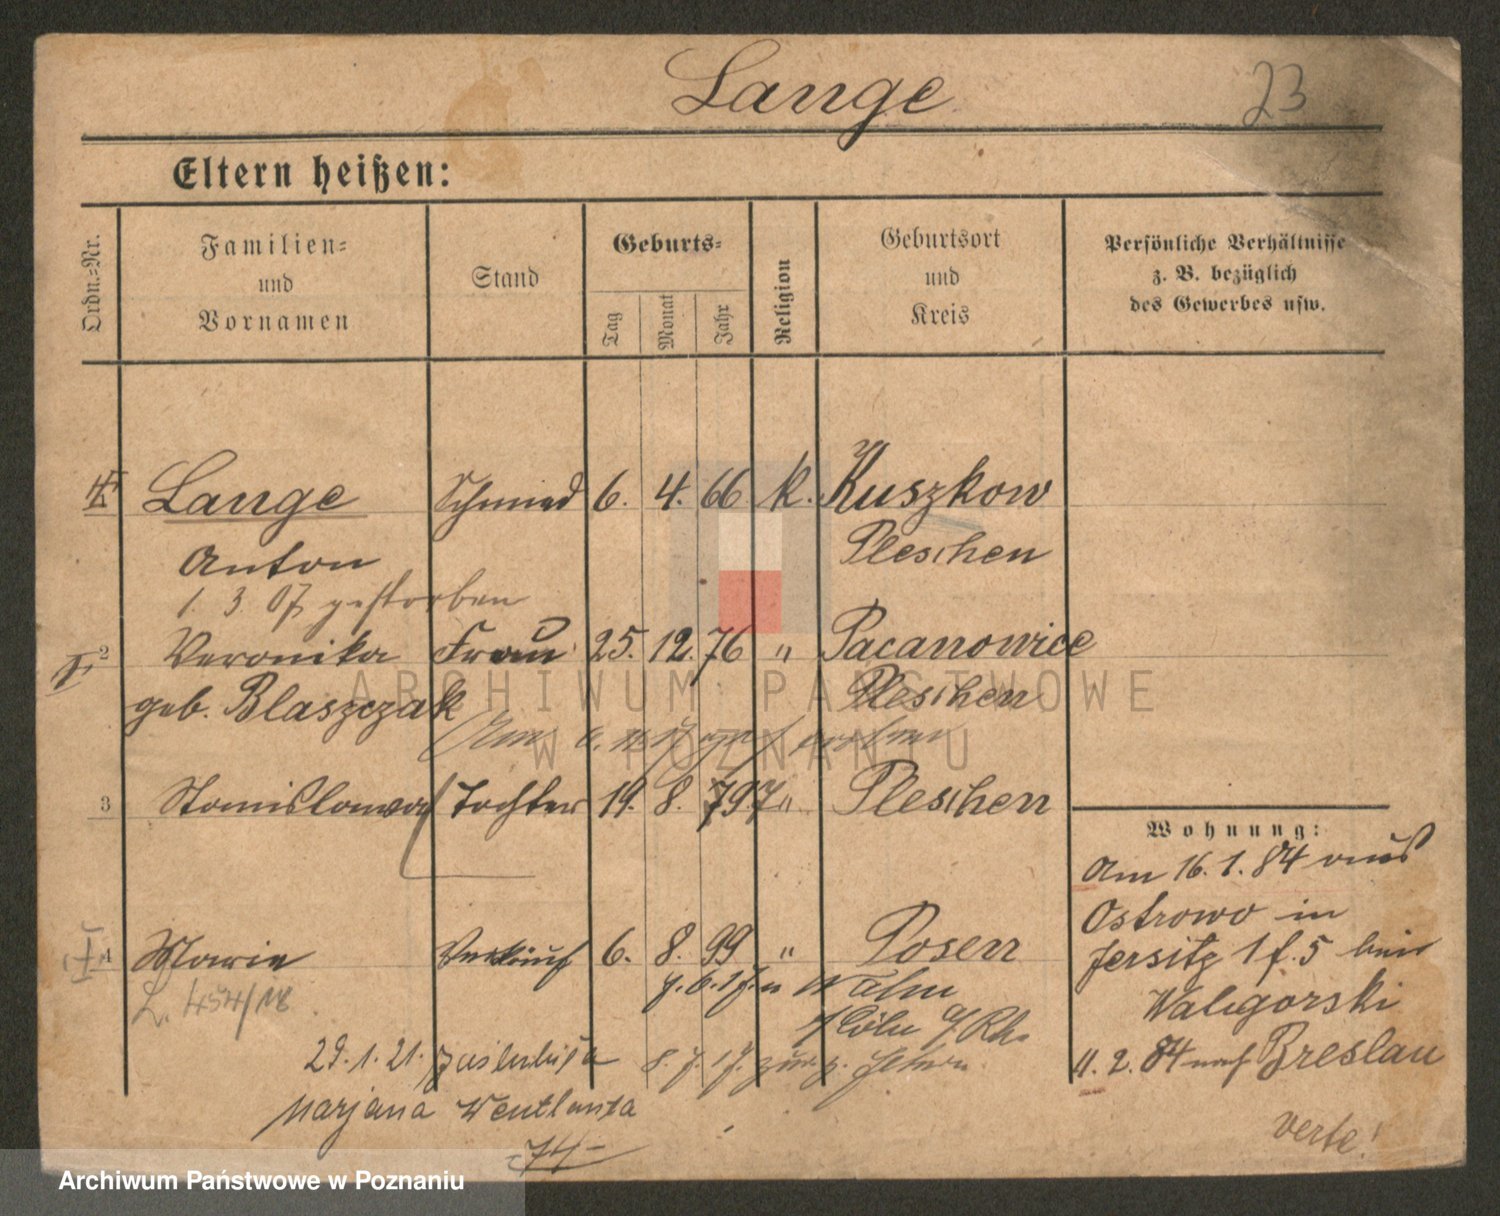 Lange
23
Eltern heißen:
Ordn.-Nr.
Familien- und Vornamen
Stand
Geburts-
Tag
Monat
Jahr
Religion
Geburtsort und Kreis
Persönliche Verhältnisse z. B. bezüglich des Gewerbes usw.
Lange Schmied 6. 4. 66 k. Kuszkow
Anton Pleschen
1. 3. 07 gestorben
2 Veronika Frau 25. 12. 76 " Pacanowice
geb. Blaszczak Pleschen
3 Stanislawa Tochter 19. 8. 97 " Pleschen
Wohnung:
Am 16. 1. 84 aus
Ostrowo in
Jersitz
Waligorski
11. 2. 84 nach Breslau
4 Marie 6. 8. 99 " Posen
L. 454/18
Wahn
Cöln a/Rh.
29. 1. 21.
Marjana
verte!
ARCHIWUM PAŃSTWOWE
W POZNANIU
Archiwum Państwowe w Poznaniu